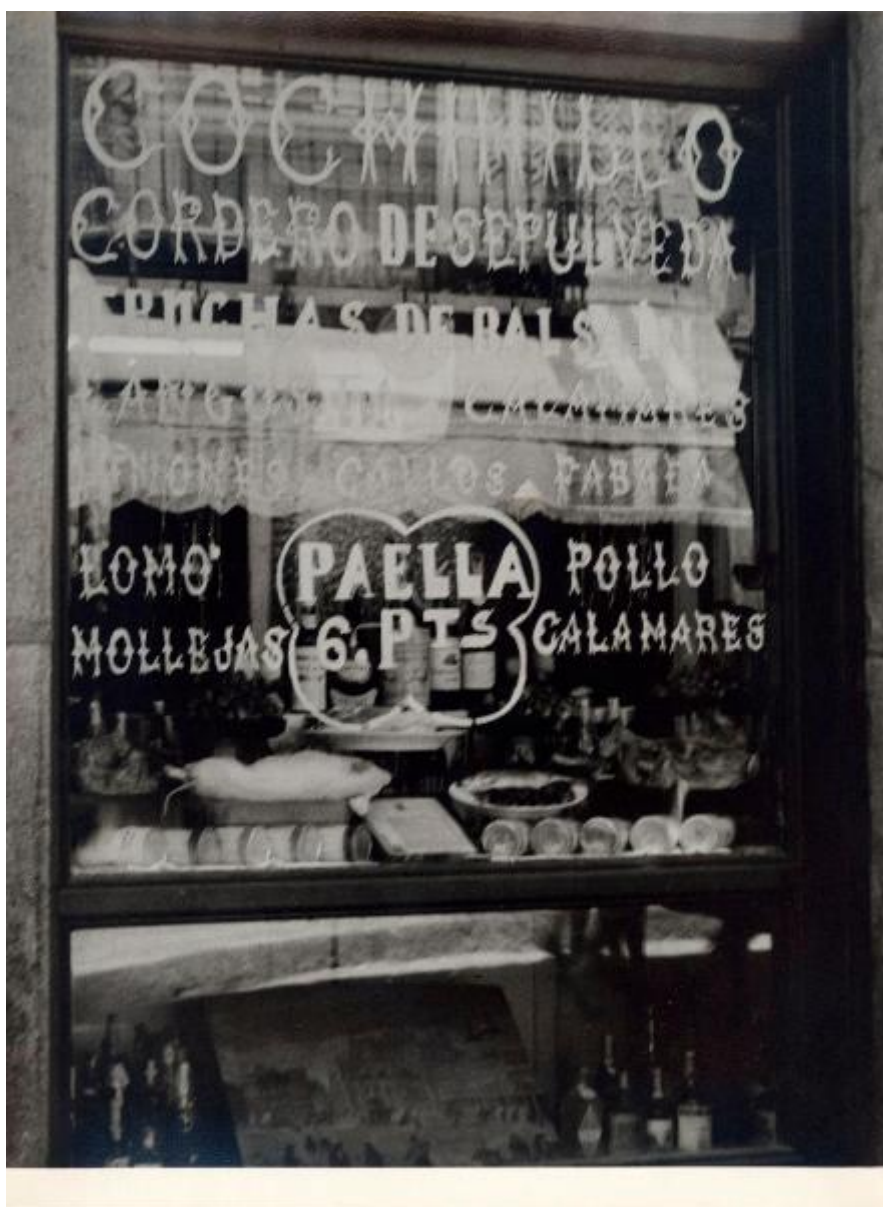 COCHINILLO
CORDERO DE SEPULVEDA
TRUCHAS DE BALSAIN
LANGOSTA CALAMARES
RIÑONES CALLOS FABADA
LOMO PAELLA POLLO
MOLLEJAS 6 PTS CALAMARES